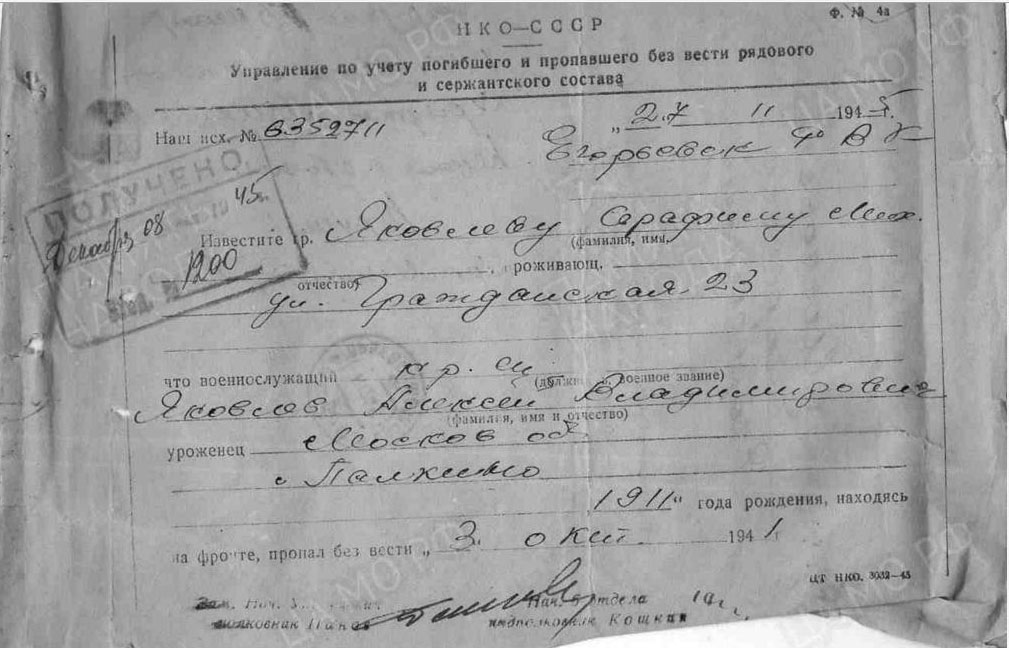 Ф. № 4а
НКО—СССР
Управление по учету погибшего и пропавшего без вести рядового
и сержантского состава
Наш исх. № 6352711
„ 27 11 1945 г.
Егорьевск
ПОЛУЧЕНО
Декабря 08 45
1200
Известите гр. Яковлеву Серафиму Мих.
(фамилия, имя,
отчество) , проживающ.
ул. Гражданская 23
что военнослужащий кр. ец
(должн. и военное звание)
Яковлев Алексей Владимирович
(фамилия, имя и отчество)
уроженец Москов об
с Палкино
1911 " года рождения, находясь
на фронте, пропал без вести „ 3. окт. 1941 г
ЦТ НКО. 3032—45
Зам. Нач.
Нач. 6 отдела
полковник
подполковник Кошкин